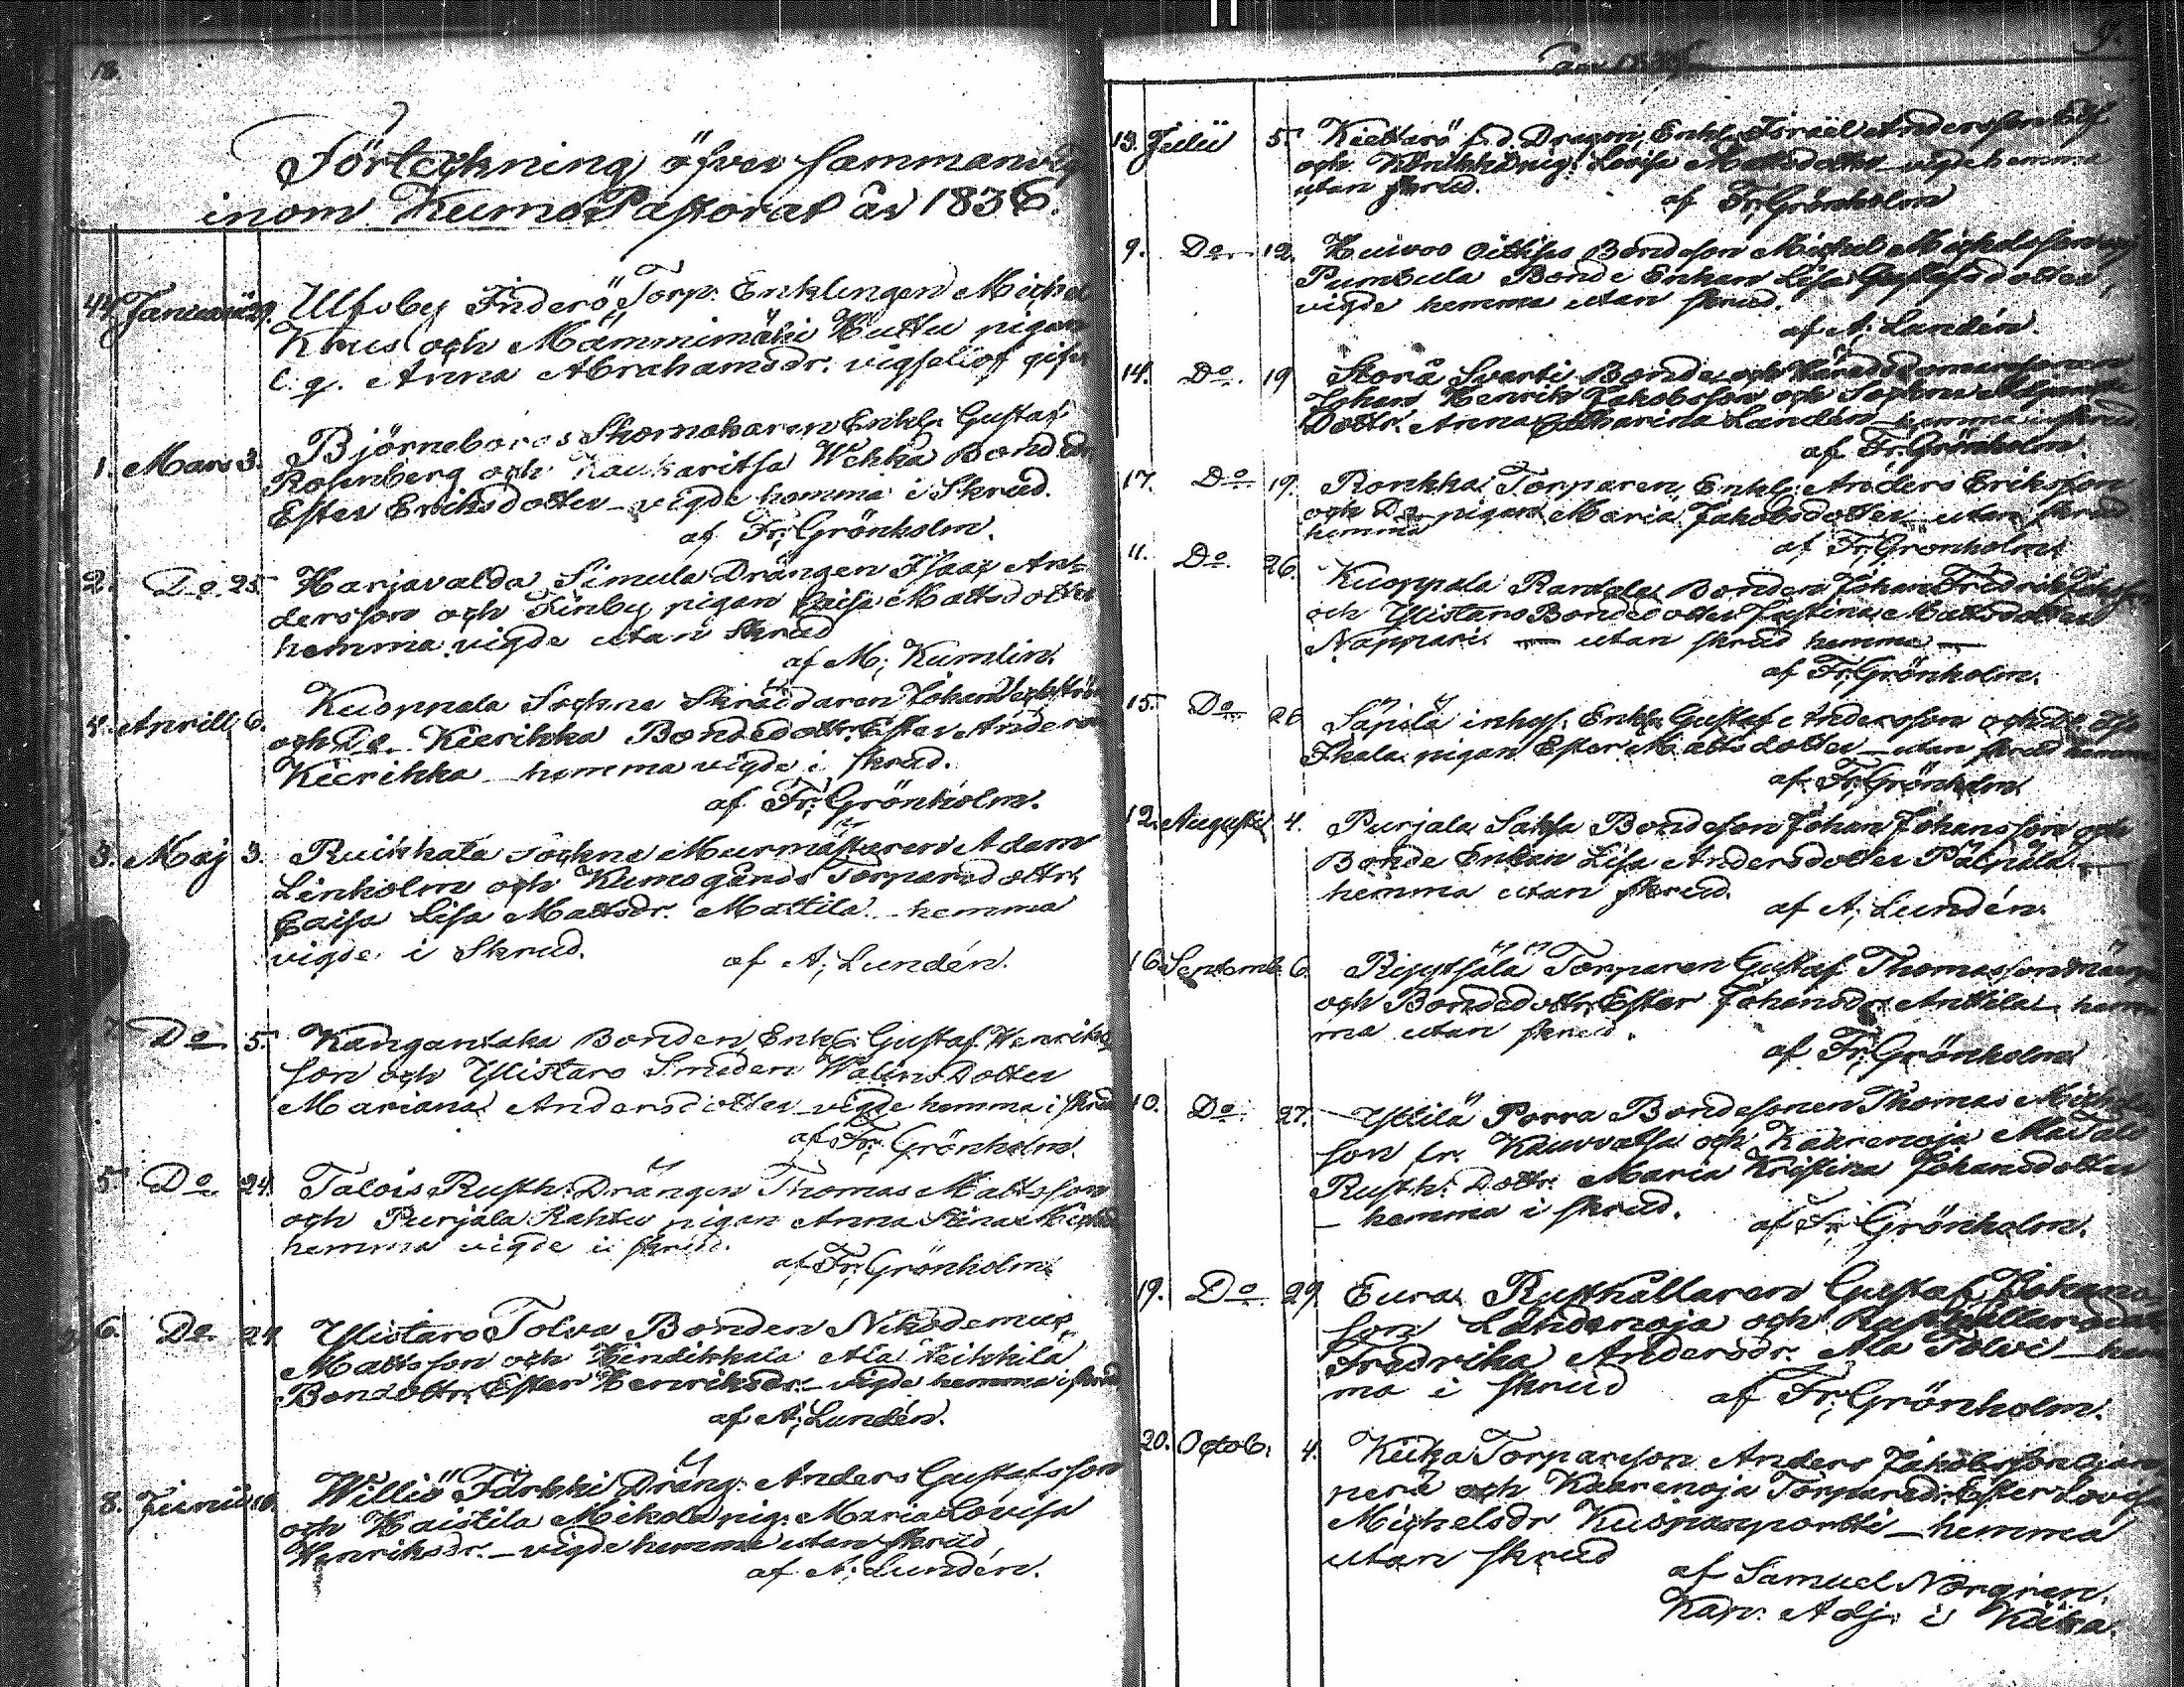 18.
Förteckning öfver Sammanvig
inom Kumo Pastorat år 1836.
44. Januarii 29. Ulfsby Inderö, Torp. Enklingen Michel
Krus och Mämmimäki Huttu pigan
C. g. Anna Abrahamsdr. vigsellöf gifv
1. Mars 3. Björneborgs Skomakaren Enkl. Gustaf
Rosenberg och Kaukaritsa Wehka Bonded
Ester Eriksdotter vigde hemma i Skrud.
af Fr; Grönholm.
2. Do 25 Harjavalda Simula Drängen Isaac An=
dersson och Tinby pigan Caisa Mattsdotter
hemma vigde utan Skrud
af M; Kumlin.
4. Aprill 6. Kuoppala Sockne Skräddaren Johan
och Do Kierikka Bondedottr. Ester Anders
Kierikka hemma vigde i skrud.
af Fr; Grönholm.
3. Maj 3. Ruikkala Sockne Murmästaren Adam
Linholm och Kumogårds Torparedottr.
Caisa Lisa Mattsdr. Mattila hemma
vigde i Skrud.
af A; Lundén.
7. Do 5. Kangantaka Bonden Enkl. Gustaf Henriks
son och Ylistaro Smeden Walins Dotter
Mariana Andersdotter vigde hemma i skrud
af Fr; Grönholm.
5. Do 24. Talois Rusth. Drängen Thomas Mattsson
och Purjala Rahtu pigan Anna Stina
hemma vigde i skrud.
af Fr; Grönholm.
6. Do 24. Ylistaro Tolva Bonden Nikodemus
Mattsson och Hindikkala Ala Heikkilä
Bondottr. Ester Henriksdr. vigde hemma i skrud
af A; Lundén.
8. Junii Williö Färkki Dräng. Anders Gustafsson
och Haistila Mikola pig. Maria Lovisa
Henriksdr. vigde hemma utan skrud
af A; Lundén.
9.
13. Julii 5. f.d. Dragon, Enkl. Israël Andersson Elf
och pig. Lovisa Mattsdotter vigde hemma
utan skrud.
af Fr; Grönholm
9. Do 12. Huivoo Bondeson Michel Michelsson
Pumbula Bonde Enkan Lisa Gustafsdotter,
vigde hemma utan skrud.
af A; Lundén.
14. Do 19 Storå Svarti Bonde och Häradsdomaresonen
Johan Henrik Jakobsson och Sockne
Dottr. Anna Catharina Lundén hemma i skrud
af Fr; Grönholm.
17. Do 19. Ronkka Torparen, Enkl. Anders Eriksson
och Do pigan Maria Jakobsdotter utan skrud
hemma
af Fr; Grönholm.
11. Do 26. Kuoppala Rantala Bonden Johan Fredrik
och Ylistaro Bondedotter Justina Mattsdotter
Nappari — utan skrud hemma —
af Fr; Grönholm.
15. Do 26 Säpilä inhys. Enkl. Gustaf Andersson och Do
Skala pigan Ester Mattsdotter utan skrud hemma
af Fr; Grönholm
12. Augusti 4. Purjala Saksa Bondeson Johan Johansson och
Bonde Enkan Lisa Andersdotter Pälpälä —
hemma utan skrud.
af A; Lundén.
16. Septemb. 6. Torparen Gustaf Thomasson
och Bondedottr. Ester Johansdr. Anttila hem
ma utan skrud.
af Fr; Grönholm
10. Do 27. Yttilä Porra Bondesonen Thomas Michels
son fr. Kauvatsa och Kaurenoja
Rusth. Dottr. Maria Kristina Johansdotter
— hemma i skrud.
af Fr; Grönholm.
19. Do 29. Eura Rusthållaren Gustaf Johans
son Lähdenoja och Rusthållaredottr
Fredrika Andersdr. Ala Tolvi — hem
ma i skrud
af Fr; Grönholm.
20. Octob. 4. Kiuka Torpareson Anders Jakobsson
perä och Kaurenoja Torparedr. Ester Lovisa
Michelsdr Kuoppanportti — hemma
utan skrud
af Samuel Norgren.
Kap. Adj. i Kiuka.